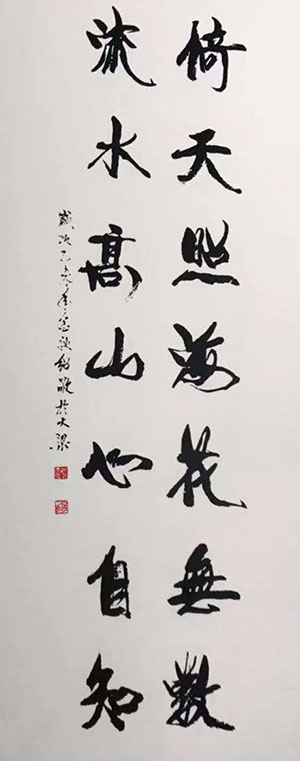 倚天照海花無數
流水高山心自知
歲次己亥年
於大梁